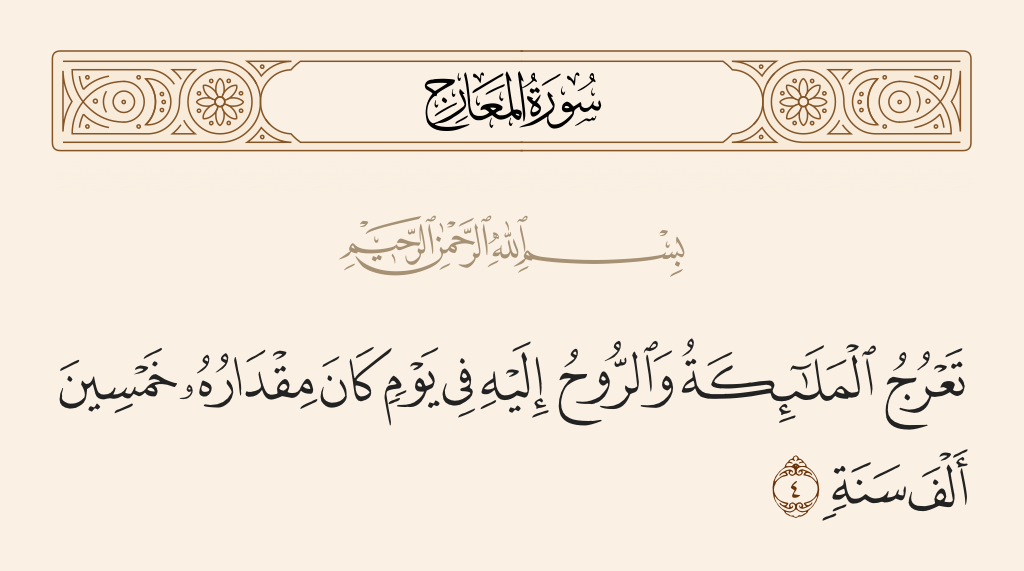 سُورَةُ المَعَارِجِ
بِسْمِ ٱللَّهِ ٱلرَّحْمَٰنِ ٱلرَّحِيمِ
تَعْرُجُ ٱلْمَلَـٰٓئِكَةُ وَٱلرُّوحُ إِلَيْهِ فِى يَوْمٍ كَانَ مِقْدَارُهُۥ خَمْسِينَ
أَلْفَ سَنَةٍ ٤